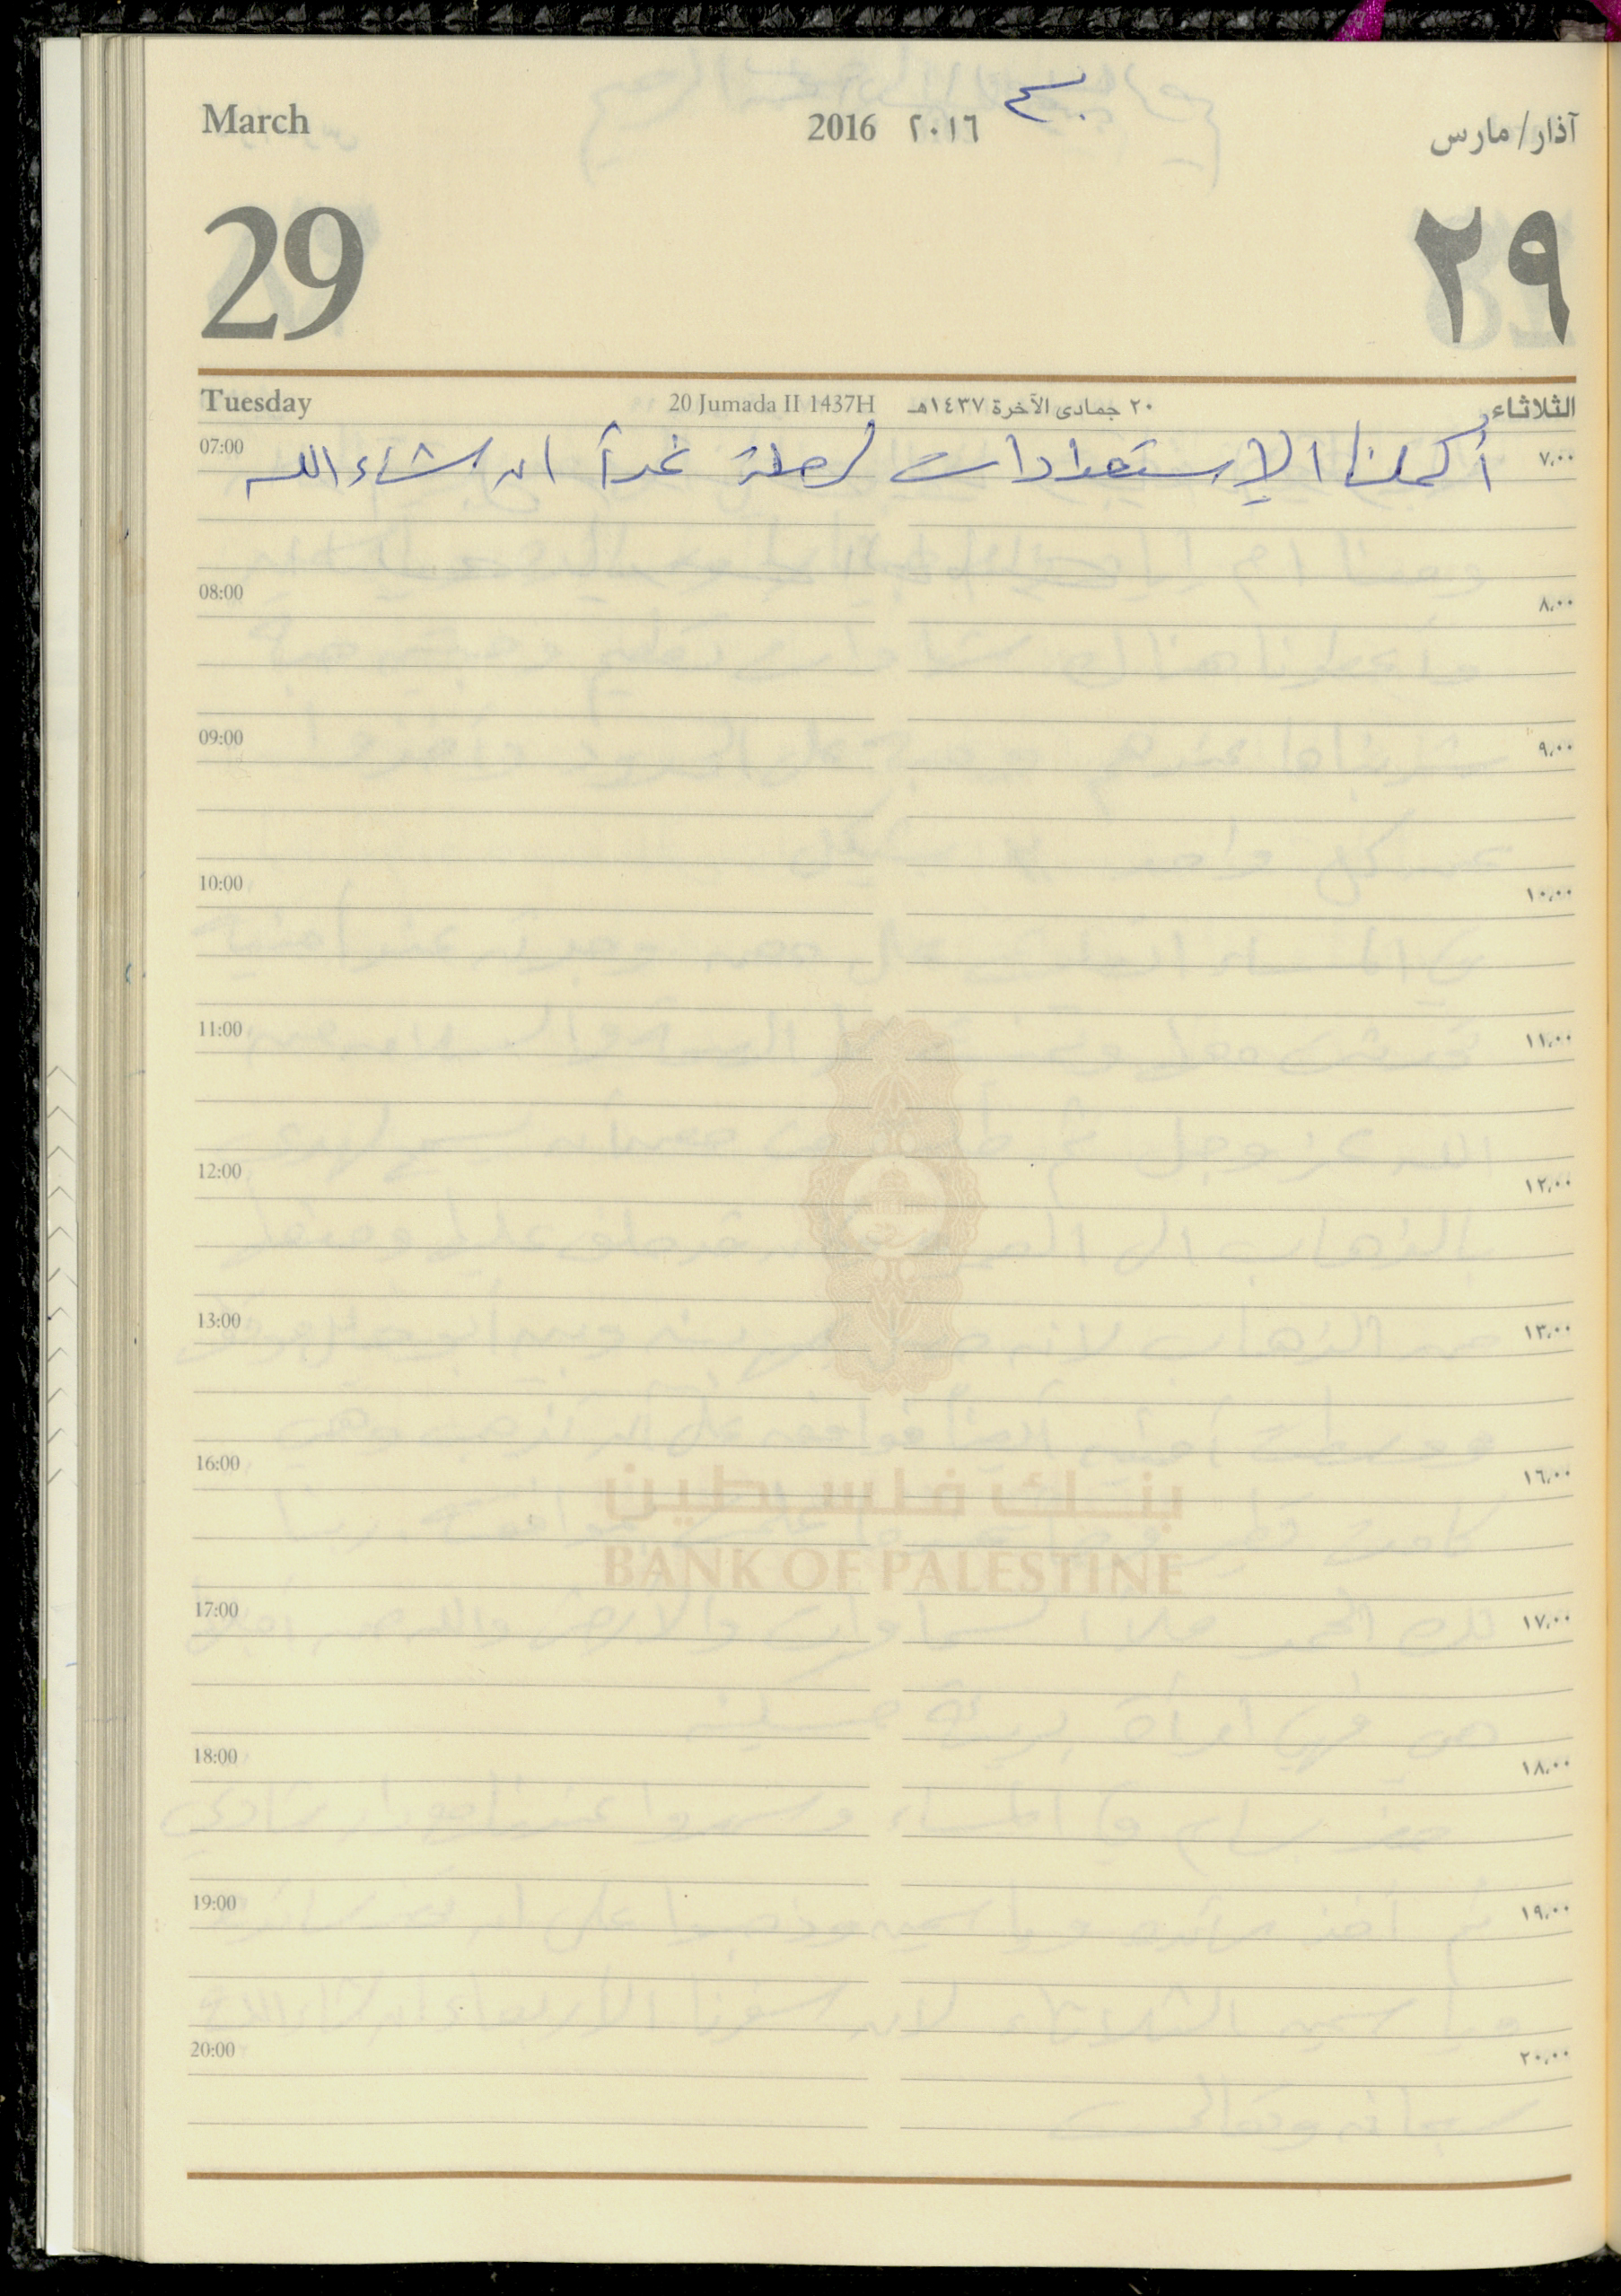 بسم
March 2016 ٢٠١٦ آذار/مارس
29 ٢٩
Tuesday 20 Jumada II 1437H ٢٠ جمادى الآخرة ١٤٣٧هـ الثلاثاء
07:00 أكملنا الإستعدادات لرحلة غداً ان شاء الله ٧،٠٠
08:00 ٨،٠٠
09:00 ٩،٠٠
10:00 ١٠،٠٠
11:00 ١١،٠٠
12:00 ١٢،٠٠
13:00 ١٣،٠٠
16:00 ١٦،٠٠
بنك فلسطين
BANK OF PALESTINE
17:00 ١٧،٠٠
18:00 ١٨،٠٠
19:00 ١٩،٠٠
20:00 ٢٠،٠٠